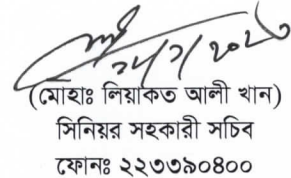 (মোহাঃ লিয়াকত আলী খান)
সিনিয়র সহকারী সচিব
ফোনঃ ২২৩৩৯০৪০০